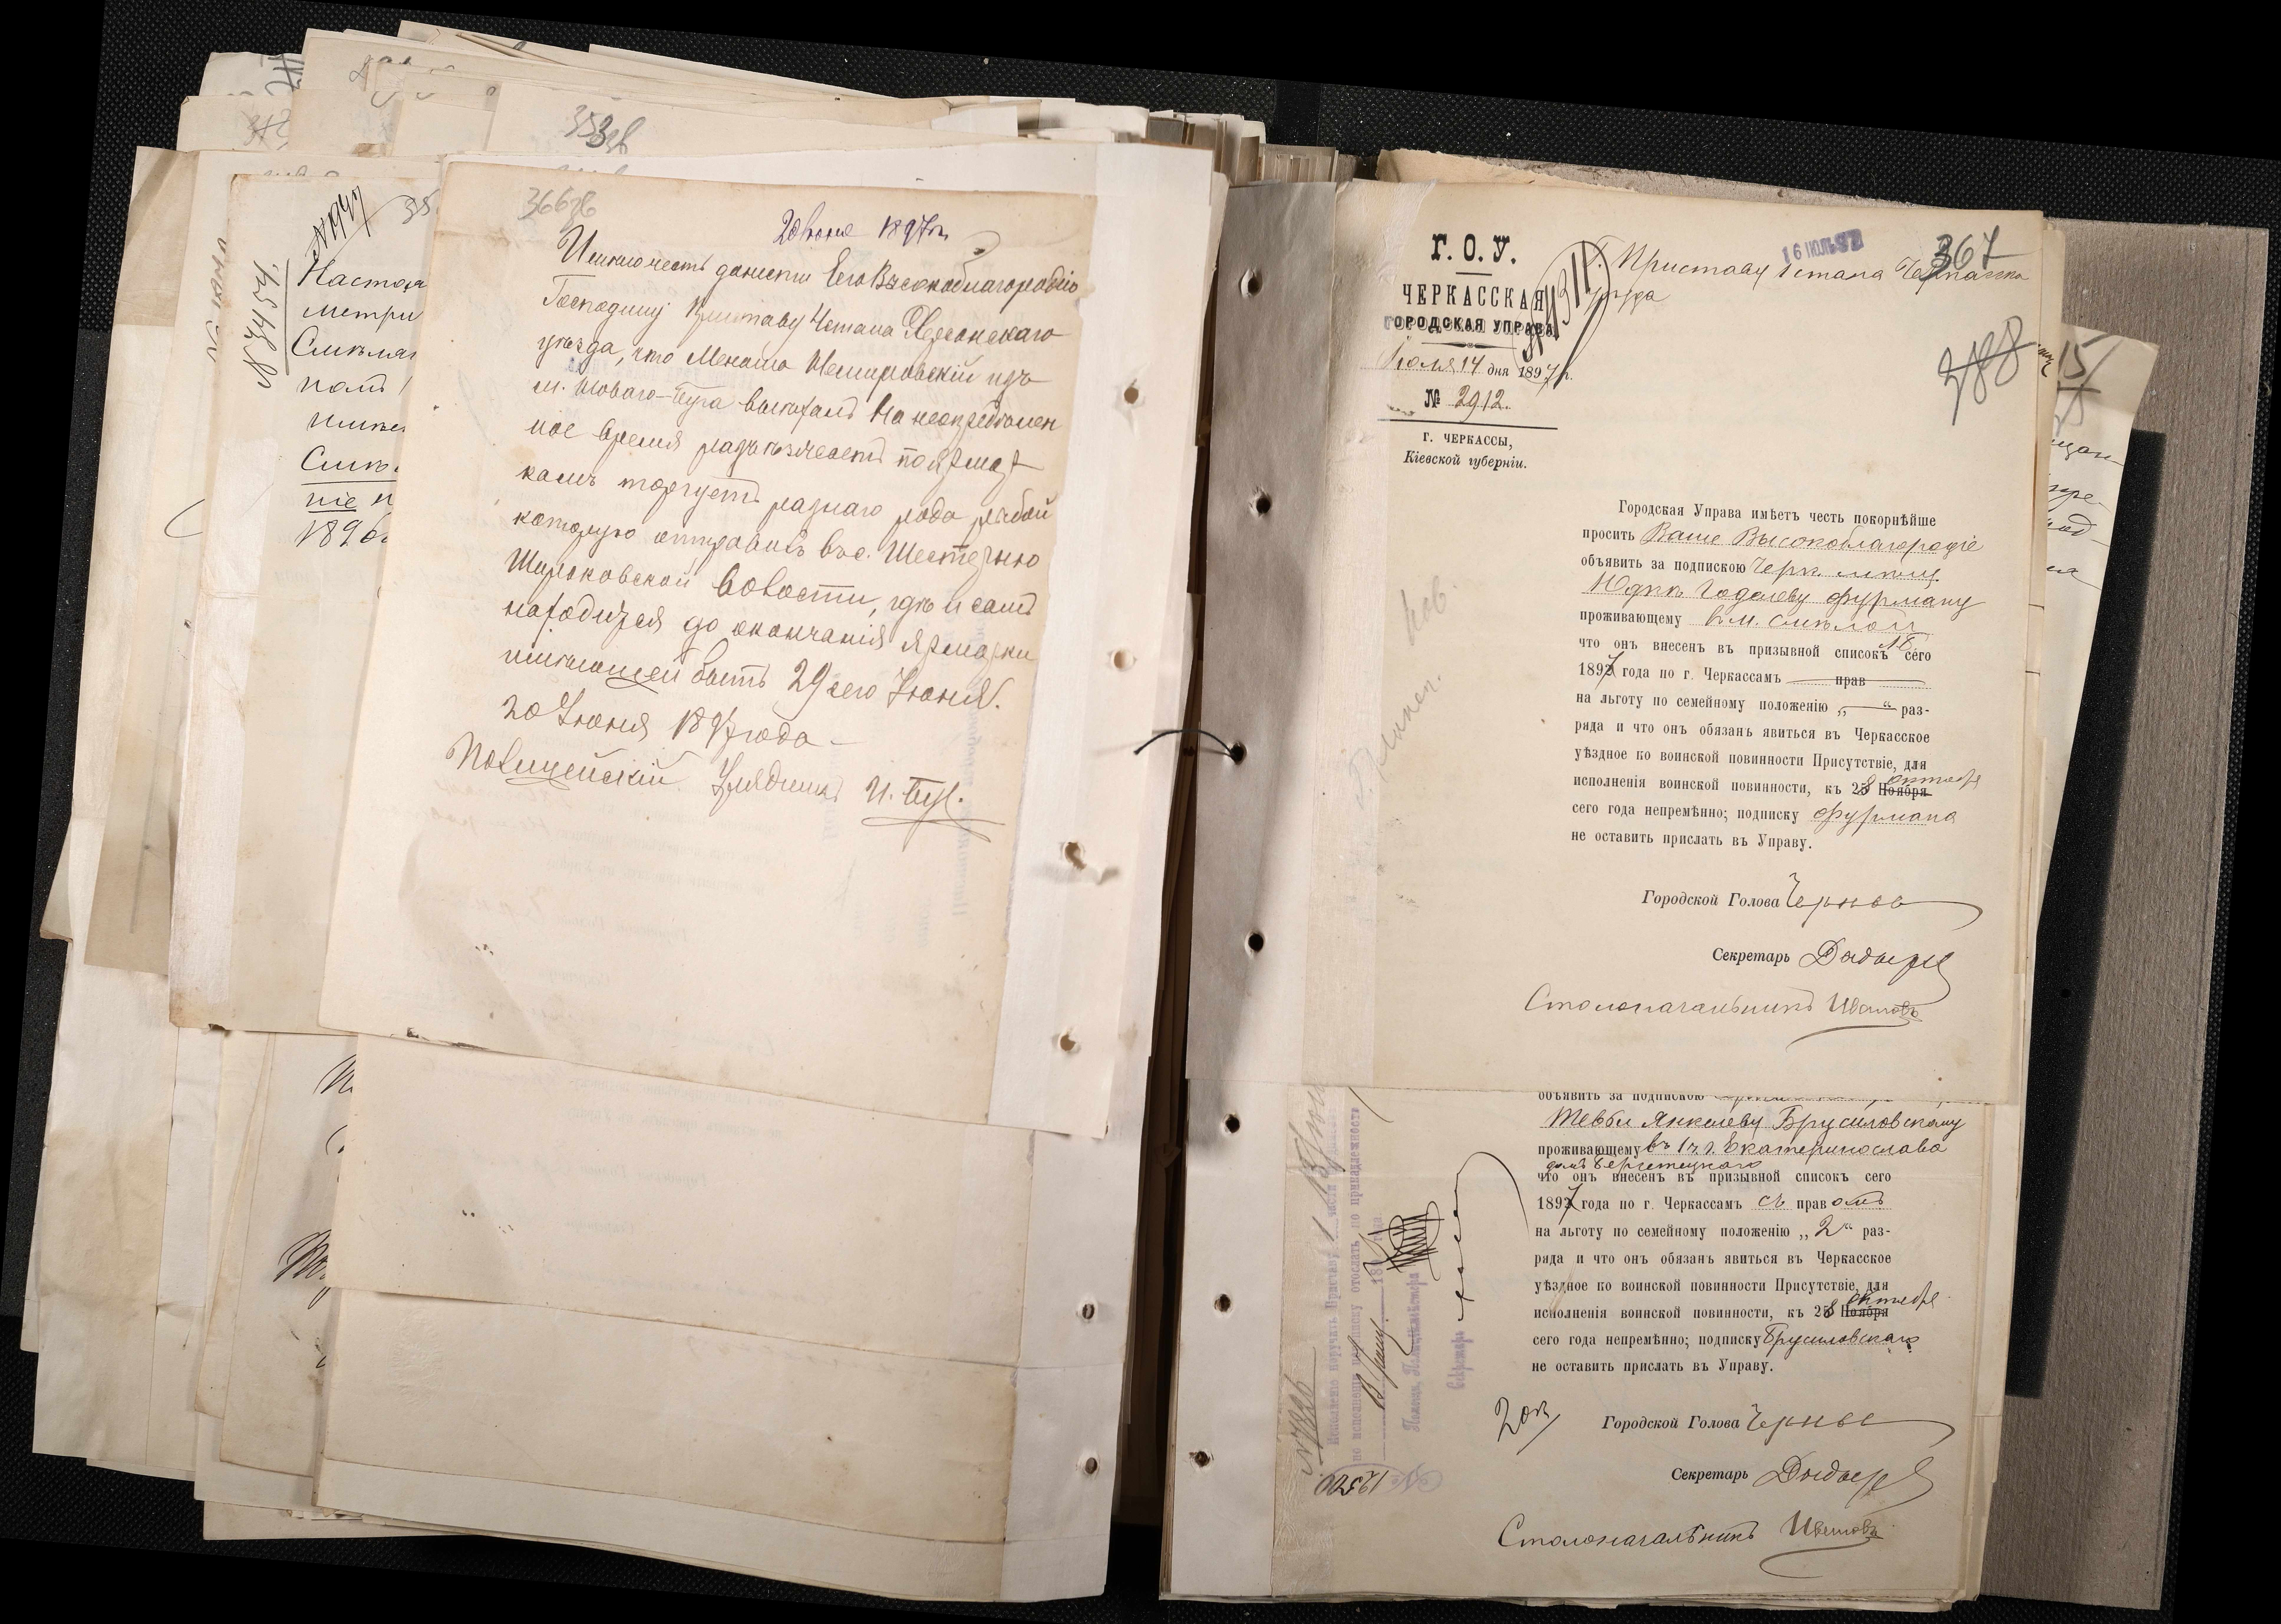 353об
366об
20 Іюня 1897 г.
Имѣю честь донести Его Высокоблагородію
Господину Приставу 4 стана Херсонскаго
уѣзда, что Менаша Немировскій изъ
м. Новаго-Буга выѣхалъ на неопредѣлен
ное время разъѣзжаетъ по ярмар
камъ торгуетъ разнаго рода рыбой
которую отправилъ въ с. Шестерню
Широковской волости, гдѣ и самъ
находится до окончанія ярмарки
имѣющей быть 29 сего Іюня.
20 Іюня 1897 года
Полицейскій Урядникъ
Настоя
метри
Смѣла
1896
367
388
16 ІЮЛЬ 97
Г. О. У.
ЧЕРКАССКАЯ
ГОРОДСКАЯ УПРАВА
Іюля 14 дня 1897 г.
№ 2912.
Г. ЧЕРКАССЫ,
Кіевской губерніи.
Приставу 1 стана Черкасска
уѣзда
Городская Управа имѣетъ честь покорнѣйше
просить Ваше Высокоблагородіе
объявить за подпискою Черк. мѣщ.
Юдкѣ Годалеву Фурману
проживающему въ м. Смѣлой
что онъ внесенъ въ призывной списокъ сего
1897 года по г. Черкассамъ прав
на льготу по семейному положенію „ — “ раз-
ряда и что онъ обязанъ явиться въ Черкасское
уѣздное по воинской повинности Присутствіе, для
исполненія воинской повинности, къ 28 Ноября октября
сего года непремѣнно; подписку Фурмана
не оставить прислать въ Управу.
Городской Голова
Секретарь
Столоначальникъ
объявить за подпискою
Тевбл Янкелеву Брусиловскому
проживающему въ 1 ч. г. Екатеринослава
что онъ внесенъ въ призывной списокъ сего
1897 года по г. Черкассамъ съ правомъ
на льготу по семейному положенію „2“ раз-
ряда и что онъ обязанъ явиться въ Черкасское
уѣздное по воинской повинности Присутствіе, для
исполненія воинской повинности, къ 28 Ноября октября
сего года непремѣнно; подписку Брусиловскаго
не оставить прислать въ Управу.
Городской Голова
Секретарь
Столоначальникъ